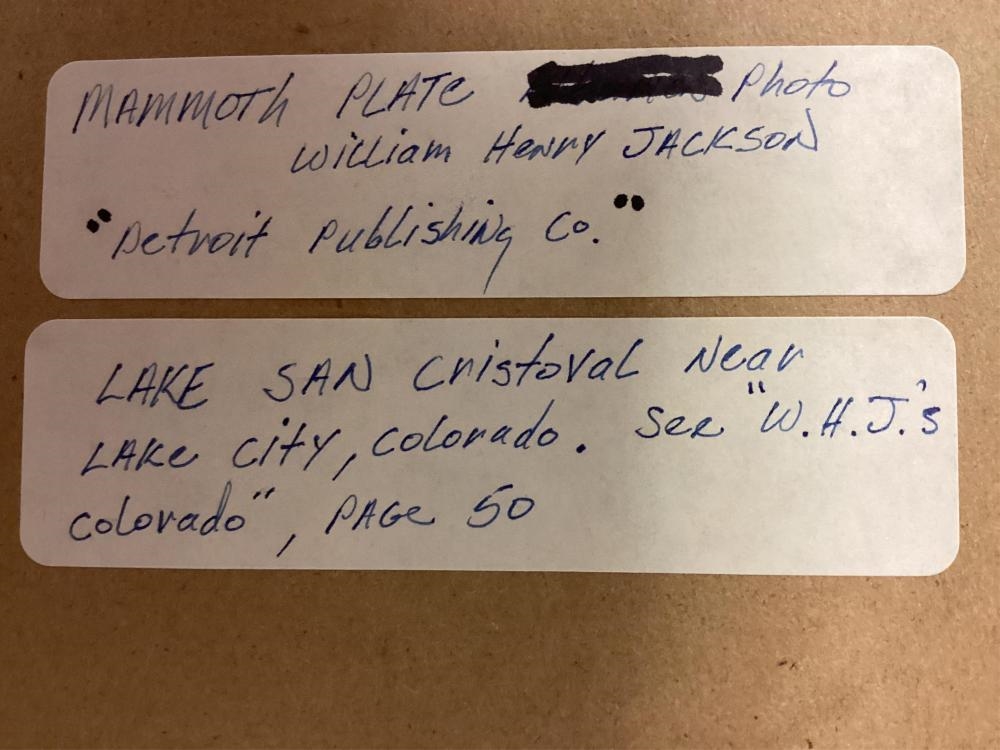 MAMMOTH PLATE Photo
William Henry JACKSON
"Detroit Publishing Co."
LAKE SAN CristoVal Near
LAKE City, Colorado. See "W.H.J.'s
Colorado", PAGE 50